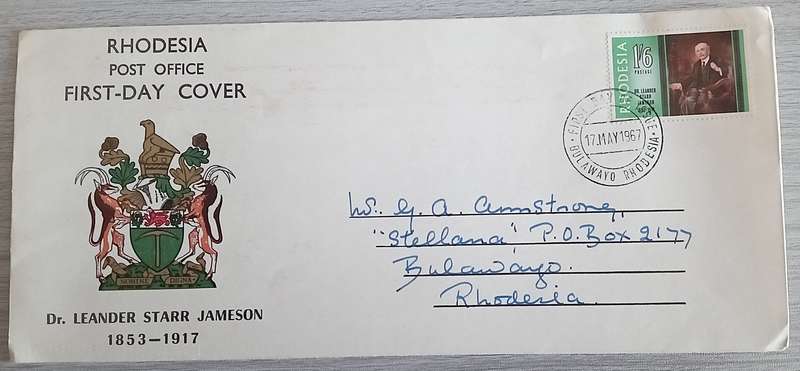 RHODESIA
POST OFFICE
FIRST-DAY COVER
SIT NOMINE DIGNA
Dr. LEANDER STARR JAMESON
1853—1917
RHODESIA
1/6
POSTAGE
DR. LEANDER
STARR
JAMESON
FIRST DAY OF ISSUE
17.MAY 1967
BULAWAYO RHODESIA
G. A. Armstrong,
"Stellana", P.O. Box 2177
Bulawayo.
Rhodesia.